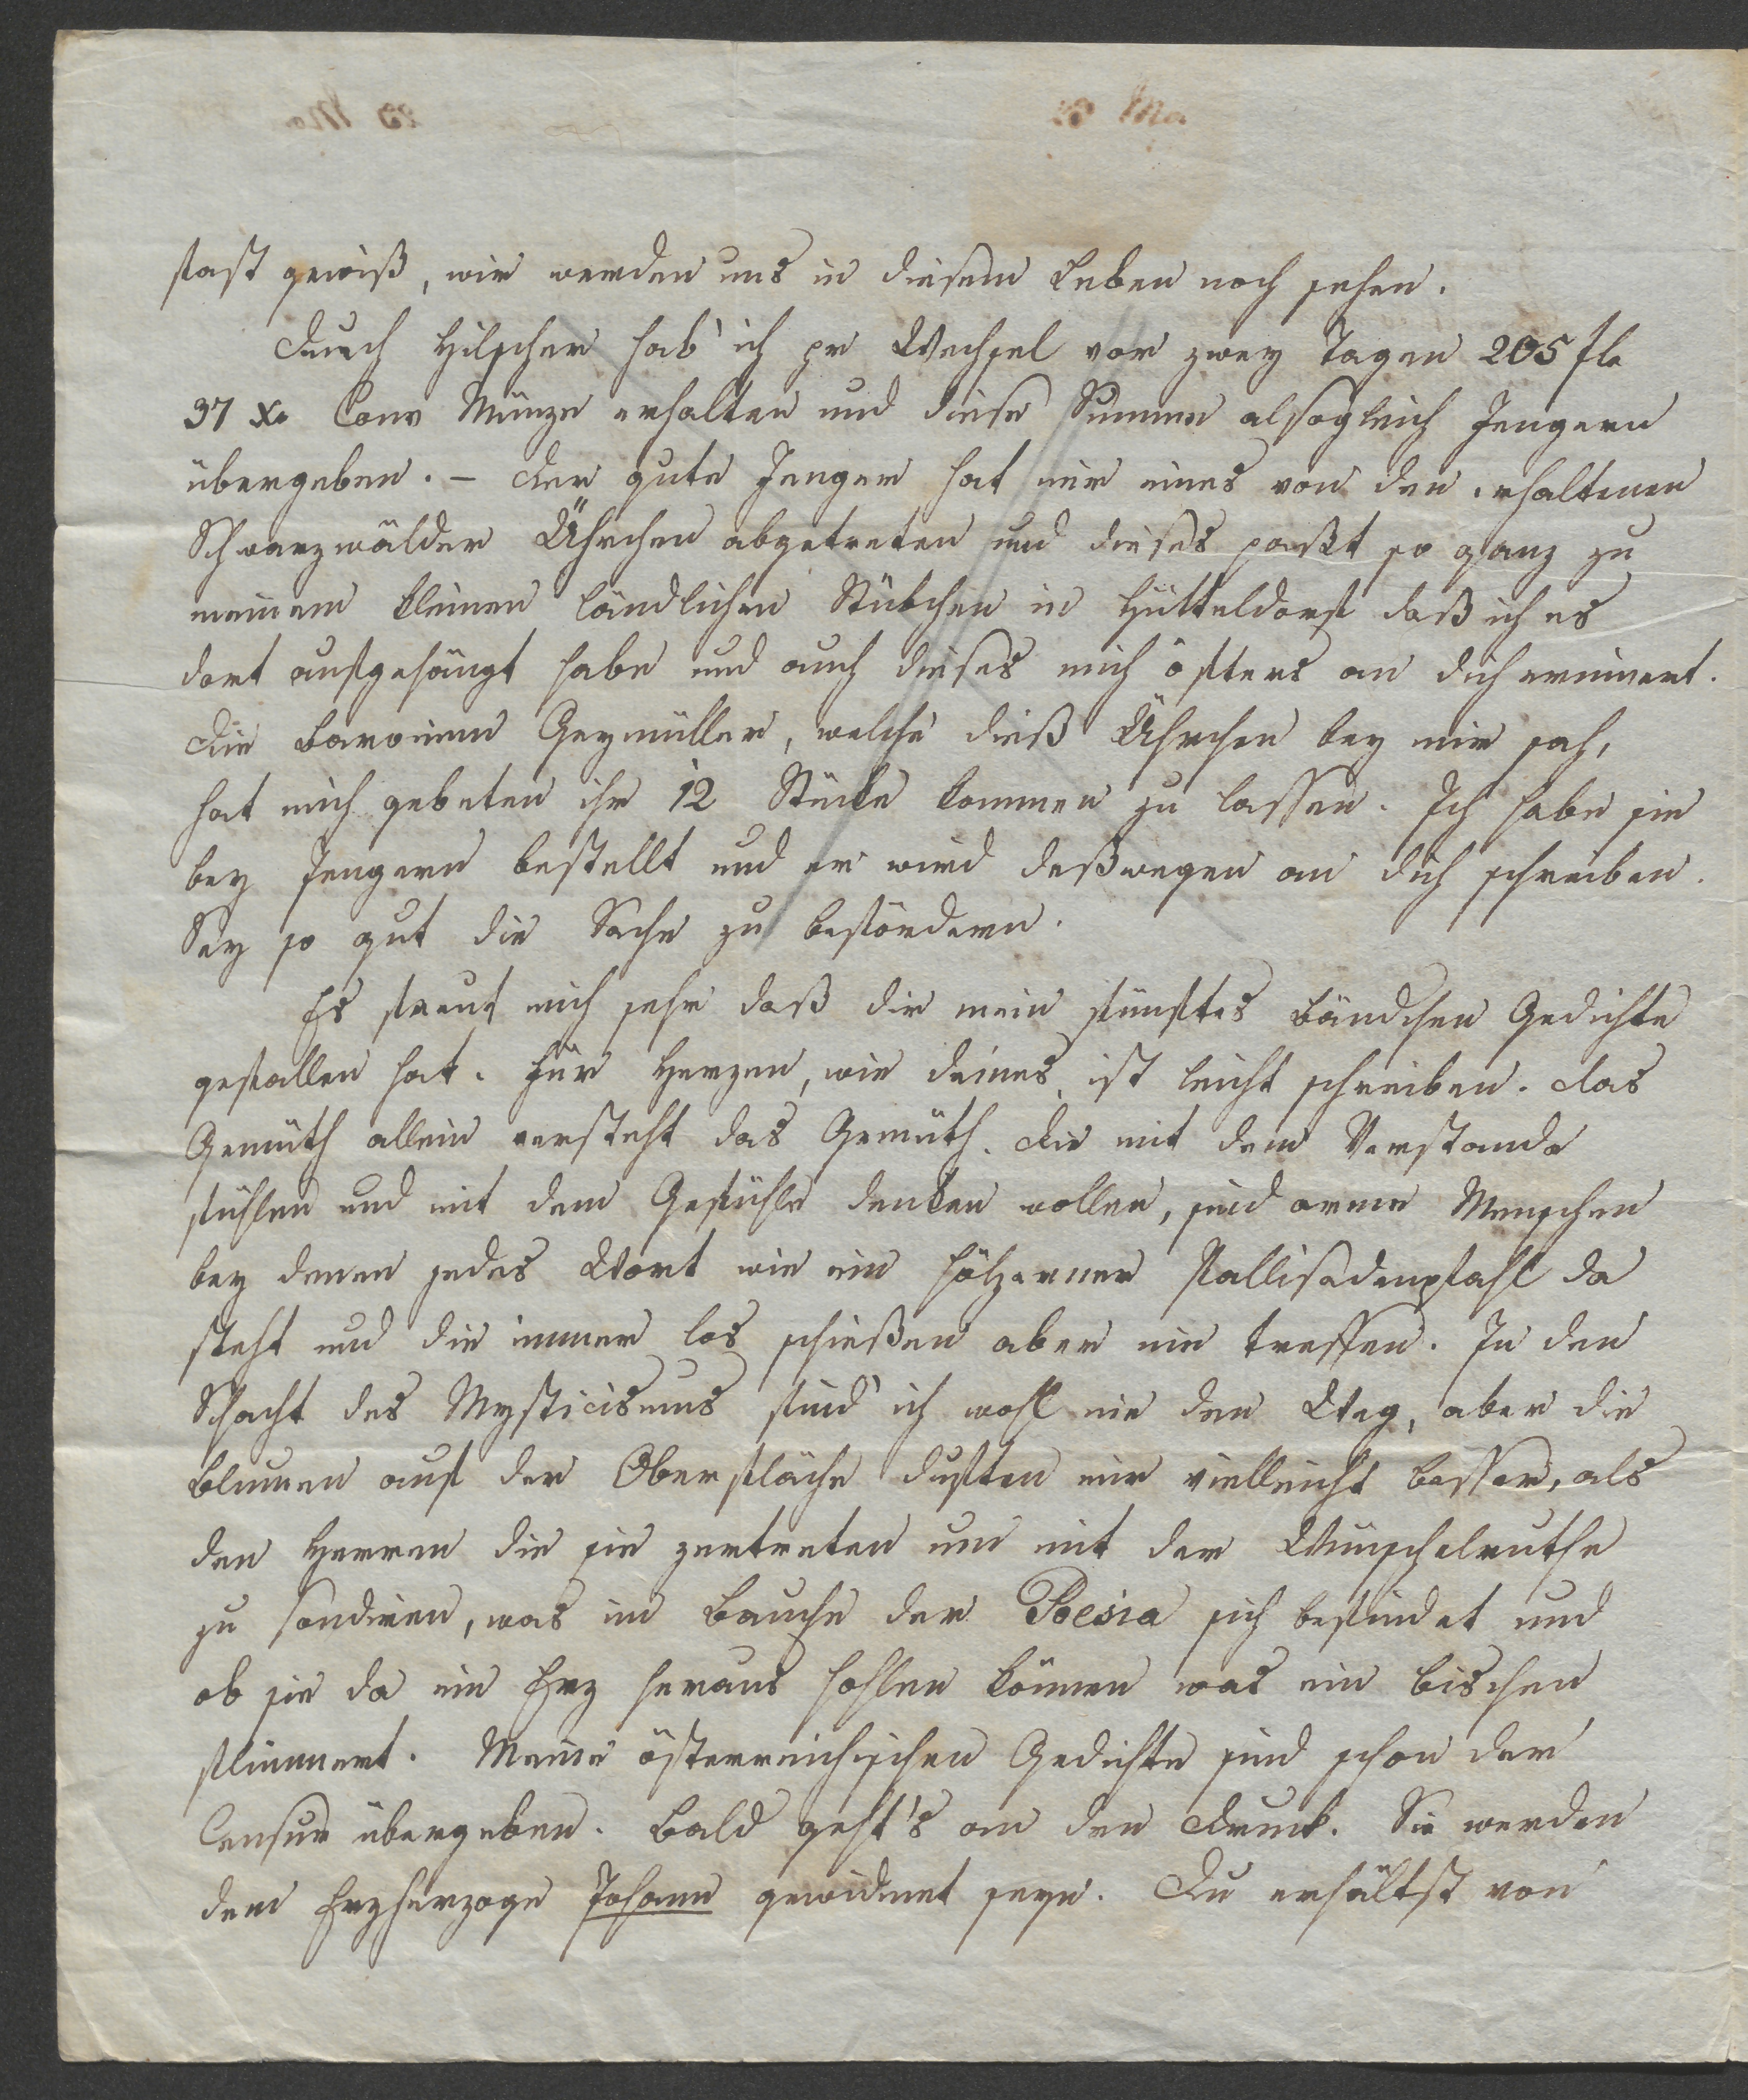 fast gewiß, wir werden uns in diesem Leben noch sehen.
Durch Hilscher hab' ich pr Wechsel vor zwey Tagen 205 fl.
37 x. Conv Münze erhalten und diese Summe alsogleich Jengern
übergeben. – Der gute Jenger hat mir eines von den erhaltenen
Schwarzwälder Ührchen abgetreten und dieses paßt so ganz zu
meinem kleinen ländlichen Stübchen in Hütteldorf daß ich es
dort aufgehängt habe und auch dieses mich öfters an dich erinnert.
Die Baroninn Geymüller, welche dieß Ührchen bey mir sah,
hat mich gebeten ihr 12 Stücke kommen zu lassen. Ich habe sie
bey Jengern bestellt und er wird deßwegen an dich schreiben.
Sey so gut die Sache zu befördern.
Es freut mich sehr daß dir mein fünftes Bändchen Gedichte
gefallen hat. Für Herzen, wie deines, ist leicht schreiben. Das
Gemüth allein versteht das Gemüth. Die mit dem Verstande
fühlen und mit dem Gefühle denken wollen, sind arme Menschen
bey denen jedes Wort wie ein hölzerner Pallisadenpfahl da
steht und die immer los schießen aber nie treffen. In den
Schacht des Mysticismus find' ich wohl nie den Weg, aber die
Blumen auf der Oberfläche duften mir vielleicht besser, als
den Herren die sie zertreten um mit der Wünschelruthe
zu sondiren, was im Bauche der Poesia sich befindet und
ob sie da ein Erz heraus hohlen können was ein bischen
flimmert. Meine österreichischen Gedichte sind schon der
Censur übergeben. Bald geht's an den Druck. Sie werden
dem Erzherzoge Johann gewidmet seyn. Du erhältst von